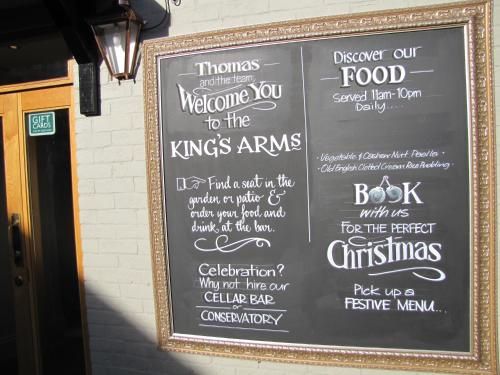 GIFT
CARDS
Thomas
and the team,
Welcome You
to the
KING'S ARMS
Find a seat in the
garden or patio &
order your food and
drink at the bar.
Celebration?
Why not hire our
CELLAR BAR
or
CONSERVATORY
Discover our
FOOD
Served 11am-10pm
Daily....
· Vegetable & Cashew Nutt Paella ·
· Old English Clotted Cream Rice Pudding ·
BOOK
with us
FOR THE PERFECT
Christmas
Pick up a
FESTIVE MENU...